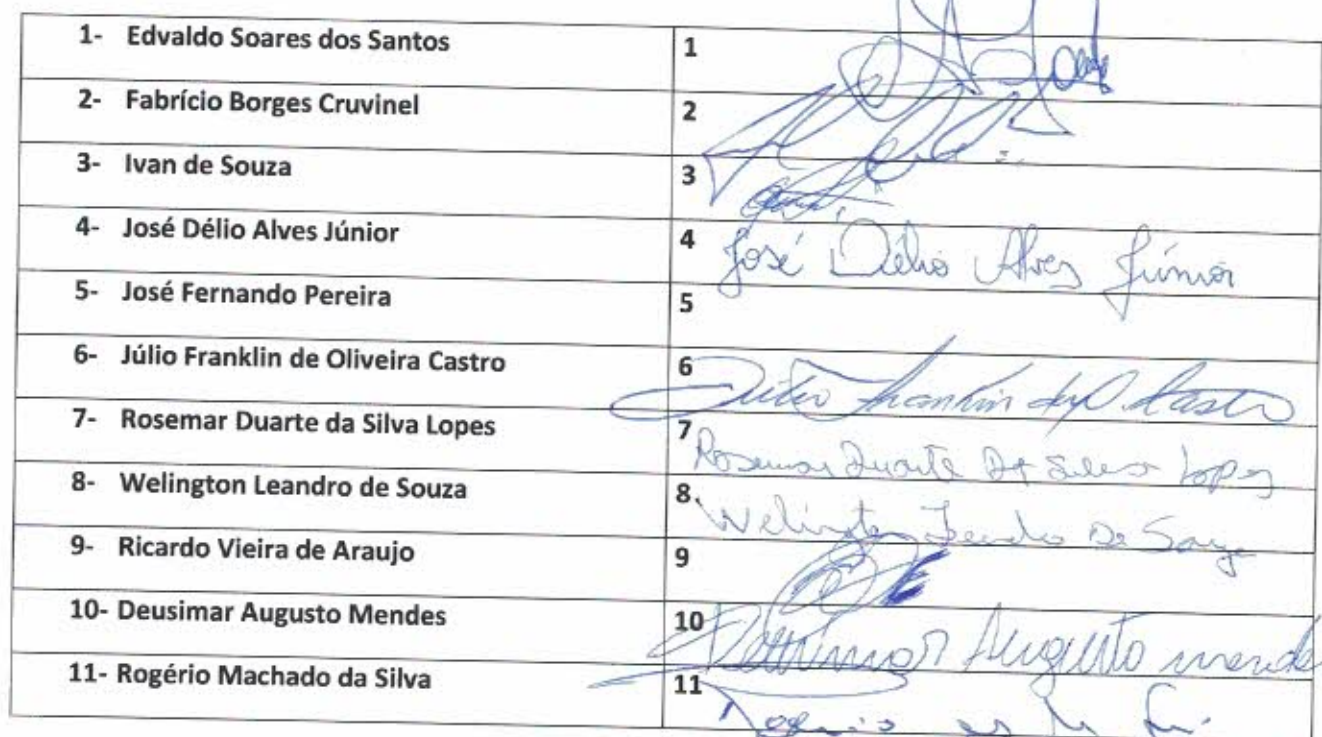 1- Edvaldo Soares dos Santos 1
2- Fabrício Borges Cruvinel 2
3- Ivan de Souza 3
4- José Délio Alves Júnior 4
José Délio Alves Júnior
5- José Fernando Pereira 5
6- Júlio Franklin de Oliveira Castro 6
Júlio Franklin de O. Castro
7- Rosemar Duarte da Silva Lopes 7
Rosemar Duarte Da Silva Lopes
8- Welington Leandro de Souza 8
Welington Leandro De Souza
9- Ricardo Vieira de Araujo 9
10- Deusimar Augusto Mendes 10
Deusimar Augusto mendes
11- Rogério Machado da Silva 11